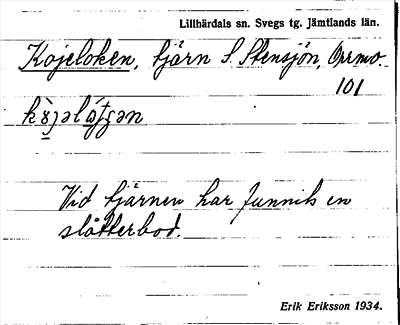 Lillhärdals sn. Svegs tg. Jämtlands län.
Kojeloken, tjärn S. Stensjön, Orrmo.
101
Vid tjärnen har funnits en
slåtterbod.
Erik Eriksson 1934.